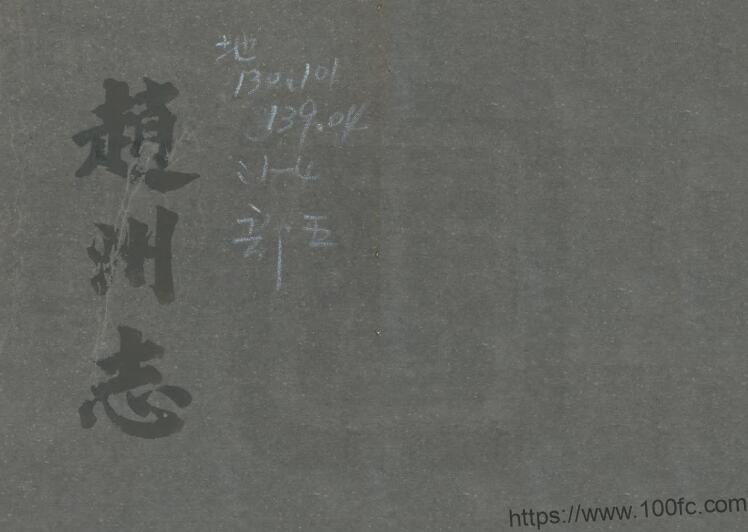 趙州志
地
130.101
139.04
https://www.100fc.com